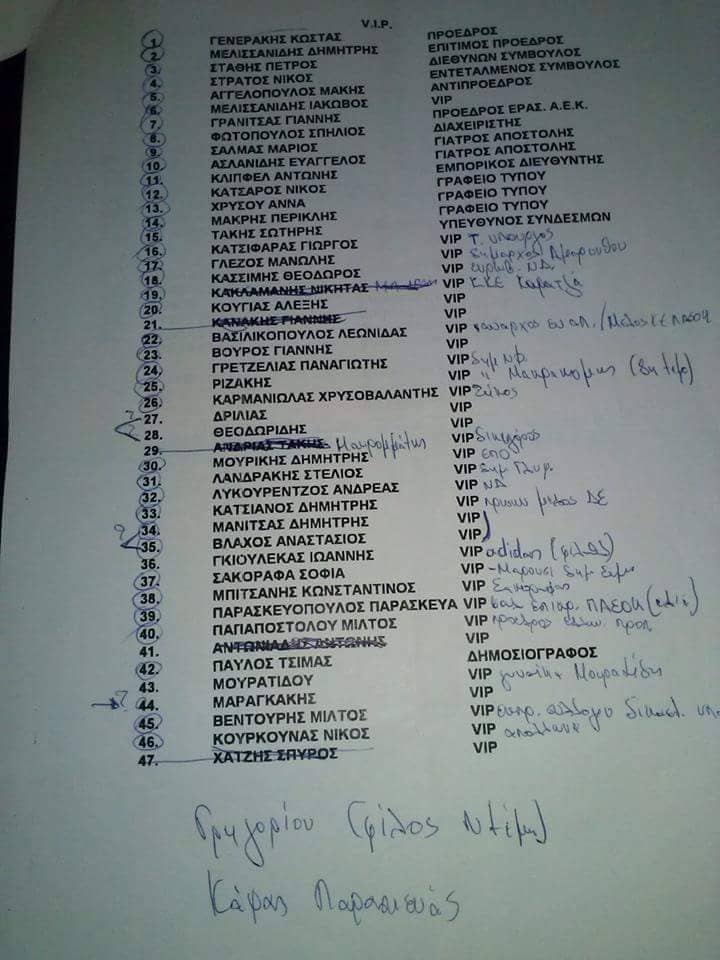 V.I.P.
1. ΓΕΝΕΡΑΚΗΣ ΚΩΣΤΑΣ ΠΡΟΕΔΡΟΣ
2. ΜΕΛΙΣΣΑΝΙΔΗΣ ΔΗΜΗΤΡΗΣ ΕΠΙΤΙΜΟΣ ΠΡΟΕΔΡΟΣ
3. ΣΤΑΘΗΣ ΠΕΤΡΟΣ ΔΙΕΘΥΝΩΝ ΣΥΜΒΟΥΛΟΣ
4. ΣΤΡΑΤΟΣ ΝΙΚΟΣ ΕΝΤΕΤΑΛΜΕΝΟΣ ΣΥΜΒΟΥΛΟΣ
5. ΑΓΓΕΛΟΠΟΥΛΟΣ ΜΑΚΗΣ ΑΝΤΙΠΡΟΕΔΡΟΣ
6. ΜΕΛΙΣΣΑΝΙΔΗΣ ΙΑΚΩΒΟΣ VIP
7. ΓΡΑΝΙΤΣΑΣ ΓΙΑΝΝΗΣ ΠΡΟΕΔΡΟΣ ΕΡΑΣ. Α.Ε.Κ.
8. ΦΩΤΟΠΟΥΛΟΣ ΣΠΗΛΙΟΣ ΔΙΑΧΕΙΡΙΣΤΗΣ
9. ΣΑΛΜΑΣ ΜΑΡΙΟΣ ΓΙΑΤΡΟΣ ΑΠΟΣΤΟΛΗΣ
10. ΑΣΛΑΝΙΔΗΣ ΕΥΑΓΓΕΛΟΣ ΓΙΑΤΡΟΣ ΑΠΟΣΤΟΛΗΣ
11. ΚΛΙΠΦΕΛ ΑΝΤΩΝΗΣ ΕΜΠΟΡΙΚΟΣ ΔΙΕΥΘΥΝΤΗΣ
12. ΚΑΤΣΑΡΟΣ ΝΙΚΟΣ ΓΡΑΦΕΙΟ ΤΥΠΟΥ
13. ΧΡΥΣΟΥ ΑΝΝΑ ΓΡΑΦΕΙΟ ΤΥΠΟΥ
14. ΜΑΚΡΗΣ ΠΕΡΙΚΛΗΣ ΓΡΑΦΕΙΟ ΤΥΠΟΥ
15. ΤΑΚΗΣ ΣΩΤΗΡΗΣ ΥΠΕΥΘΥΝΟΣ ΣΥΝΔΕΣΜΩΝ
16. ΚΑΤΣΙΦΑΡΑΣ ΓΙΩΡΓΟΣ VIP Τ. υπουργος
17. ΓΛΕΖΟΣ ΜΑΝΩΛΗΣ VIP δημαρχος
18. ΚΑΣΣΙΜΗΣ ΘΕΟΔΩΡΟΣ VIP ευρωβ. ΝΔ.
19. ΚΑΚΛΑΜΑΝΗΣ ΝΙΚΗΤΑΣ VIP Κ.Κ.Ε
20. ΚΟΥΓΙΑΣ ΑΛΕΞΗΣ VIP
21. ΚΑΝΑΚΗΣ ΓΙΑΝΝΗΣ VIP
22. ΒΑΣΙΛΙΚΟΠΟΥΛΟΣ ΛΕΩΝΙΔΑΣ VIP ναυαρχος εν απ. /Μελος ΚΕ ΠΑΣΟΚ
23. ΒΟΥΡΟΣ ΓΙΑΝΝΗΣ VIP
24. ΓΡΕΤΖΕΛΙΑΣ ΠΑΝΑΓΙΩΤΗΣ VIP
25. ΡΙΖΑΚΗΣ VIP "
26. ΚΑΡΜΑΝΙΩΛΑΣ ΧΡΥΣΟΒΑΛΑΝΤΗΣ VIP
? 27. ΔΡΙΛΙΑΣ VIP
28. ΘΕΟΔΩΡΙΔΗΣ VIP
29. ΑΝΔΡΙΑΣ ΤΑΚΗΣ Μαυρομμάτης VIP δικηγόρος
30. ΜΟΥΡΙΚΗΣ ΔΗΜΗΤΡΗΣ VIP ΕΠΟ
31. ΛΑΝΔΡΑΚΗΣ ΣΤΕΛΙΟΣ VIP Δημ Γλυφ.
32. ΛΥΚΟΥΡΕΝΤΖΟΣ ΑΝΔΡΕΑΣ VIP ΝΔ
33. ΚΑΤΣΙΑΝΟΣ ΔΗΜΗΤΡΗΣ VIP πρωην μελος ΔΣ
? 34. ΜΑΝΙΤΣΑΣ ΔΗΜΗΤΡΗΣ VIP
35. ΒΛΑΧΟΣ ΑΝΑΣΤΑΣΙΟΣ VIP
36. ΓΚΙΟΥΛΕΚΑΣ ΙΩΑΝΝΗΣ VIP adidas
37. ΣΑΚΟΡΑΦΑ ΣΟΦΙΑ VIP -Μαρουσι
38. ΜΠΙΤΣΑΝΗΣ ΚΩΝΣΤΑΝΤΙΝΟΣ VIP
39. ΠΑΡΑΣΚΕΥΟΠΟΥΛΟΣ ΠΑΡΑΣΚΕΥΑ VIP ΠΑΣΟΚ
40. ΠΑΠΑΠΟΣΤΟΛΟΥ ΜΙΛΤΟΣ VIP προεδρος ελλην. προπ
41. ΑΝΤΩΝΙΑΔΗΣ ΑΝΤΩΝΗΣ VIP
42. ΠΑΥΛΟΣ ΤΣΙΜΑΣ ΔΗΜΟΣΙΟΓΡΑΦΟΣ
43. ΜΟΥΡΑΤΙΔΟΥ VIP γυναικα Μουρατιδη
? 44. ΜΑΡΑΓΚΑΚΗΣ VIP
45. ΒΕΝΤΟΥΡΗΣ ΜΙΛΤΟΣ VIP
46. ΚΟΥΡΚΟΥΝΑΣ ΝΙΚΟΣ VIP
47. ΧΑΤΖΗΣ ΣΠΥΡΟΣ VIP
Γρηγορίου (φίλος Ντέμη)
Κάρας Παρασκευάς